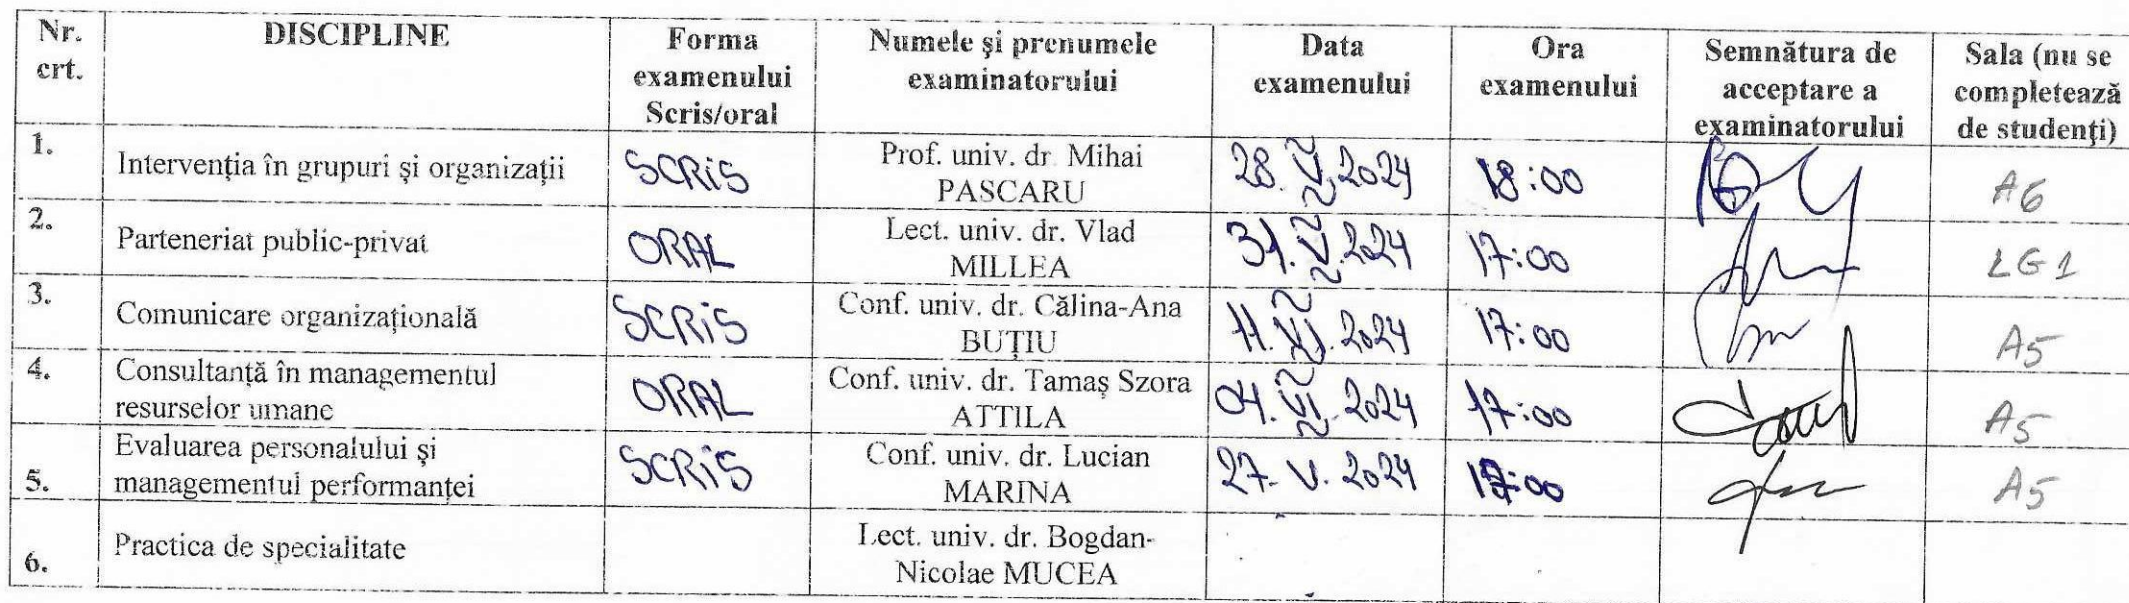 Nr. crt.
DISCIPLINE
Forma examenului Scris/oral
Numele și prenumele examinatorului
Data examenului
Ora examenului
Semnătura de acceptare a examinatorului
Sala (nu se completează de studenți)
1.
Intervenția în grupuri și organizații
SCRIS
Prof. univ. dr. Mihai
PASCARU
28. V. 2024
18:00
A6
2.
Parteneriat public-privat
ORAL
Lect. univ. dr. Vlad
MILLEA
31. V. 2024
17:00
LG1
3.
Comunicare organizațională
SCRIS
Conf. univ. dr. Călina-Ana
BUȚIU
11. VI. 2024
17:00
A5
4.
Consultanță în managementul
resurselor umane
ORAL
Conf. univ. dr. Tamaș Szora
ATTILA
04. VI. 2024
17:00
A5
5.
Evaluarea personalului și
managementul performanței
SCRIS
Conf. univ. dr. Lucian
MARINA
27. V. 2024
A5
6.
Practica de specialitate
Lect. univ. dr. Bogdan-
Nicolae MUCEA